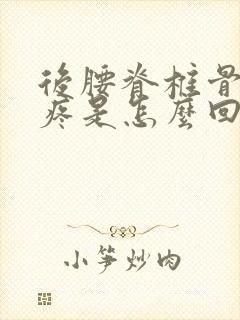 後腰脊椎骨
疼是怎麼回
小笋炒肉